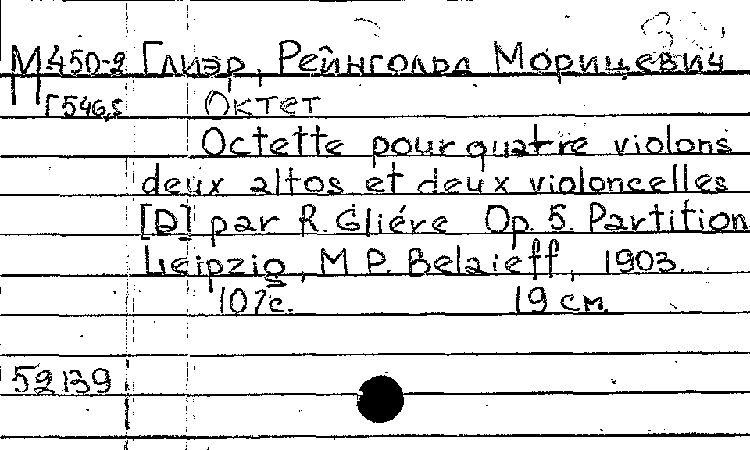 М450-2 Глиэр, Рейнгольд Морицевич
Г546,5 Октет
Octette pour quatre violons
deux altos et deux violoncelles
[D] par R. Gliére Op. 5. Partition
Leipzig, M. P. Belaieff, 1903.
107с. 19 см.
52139